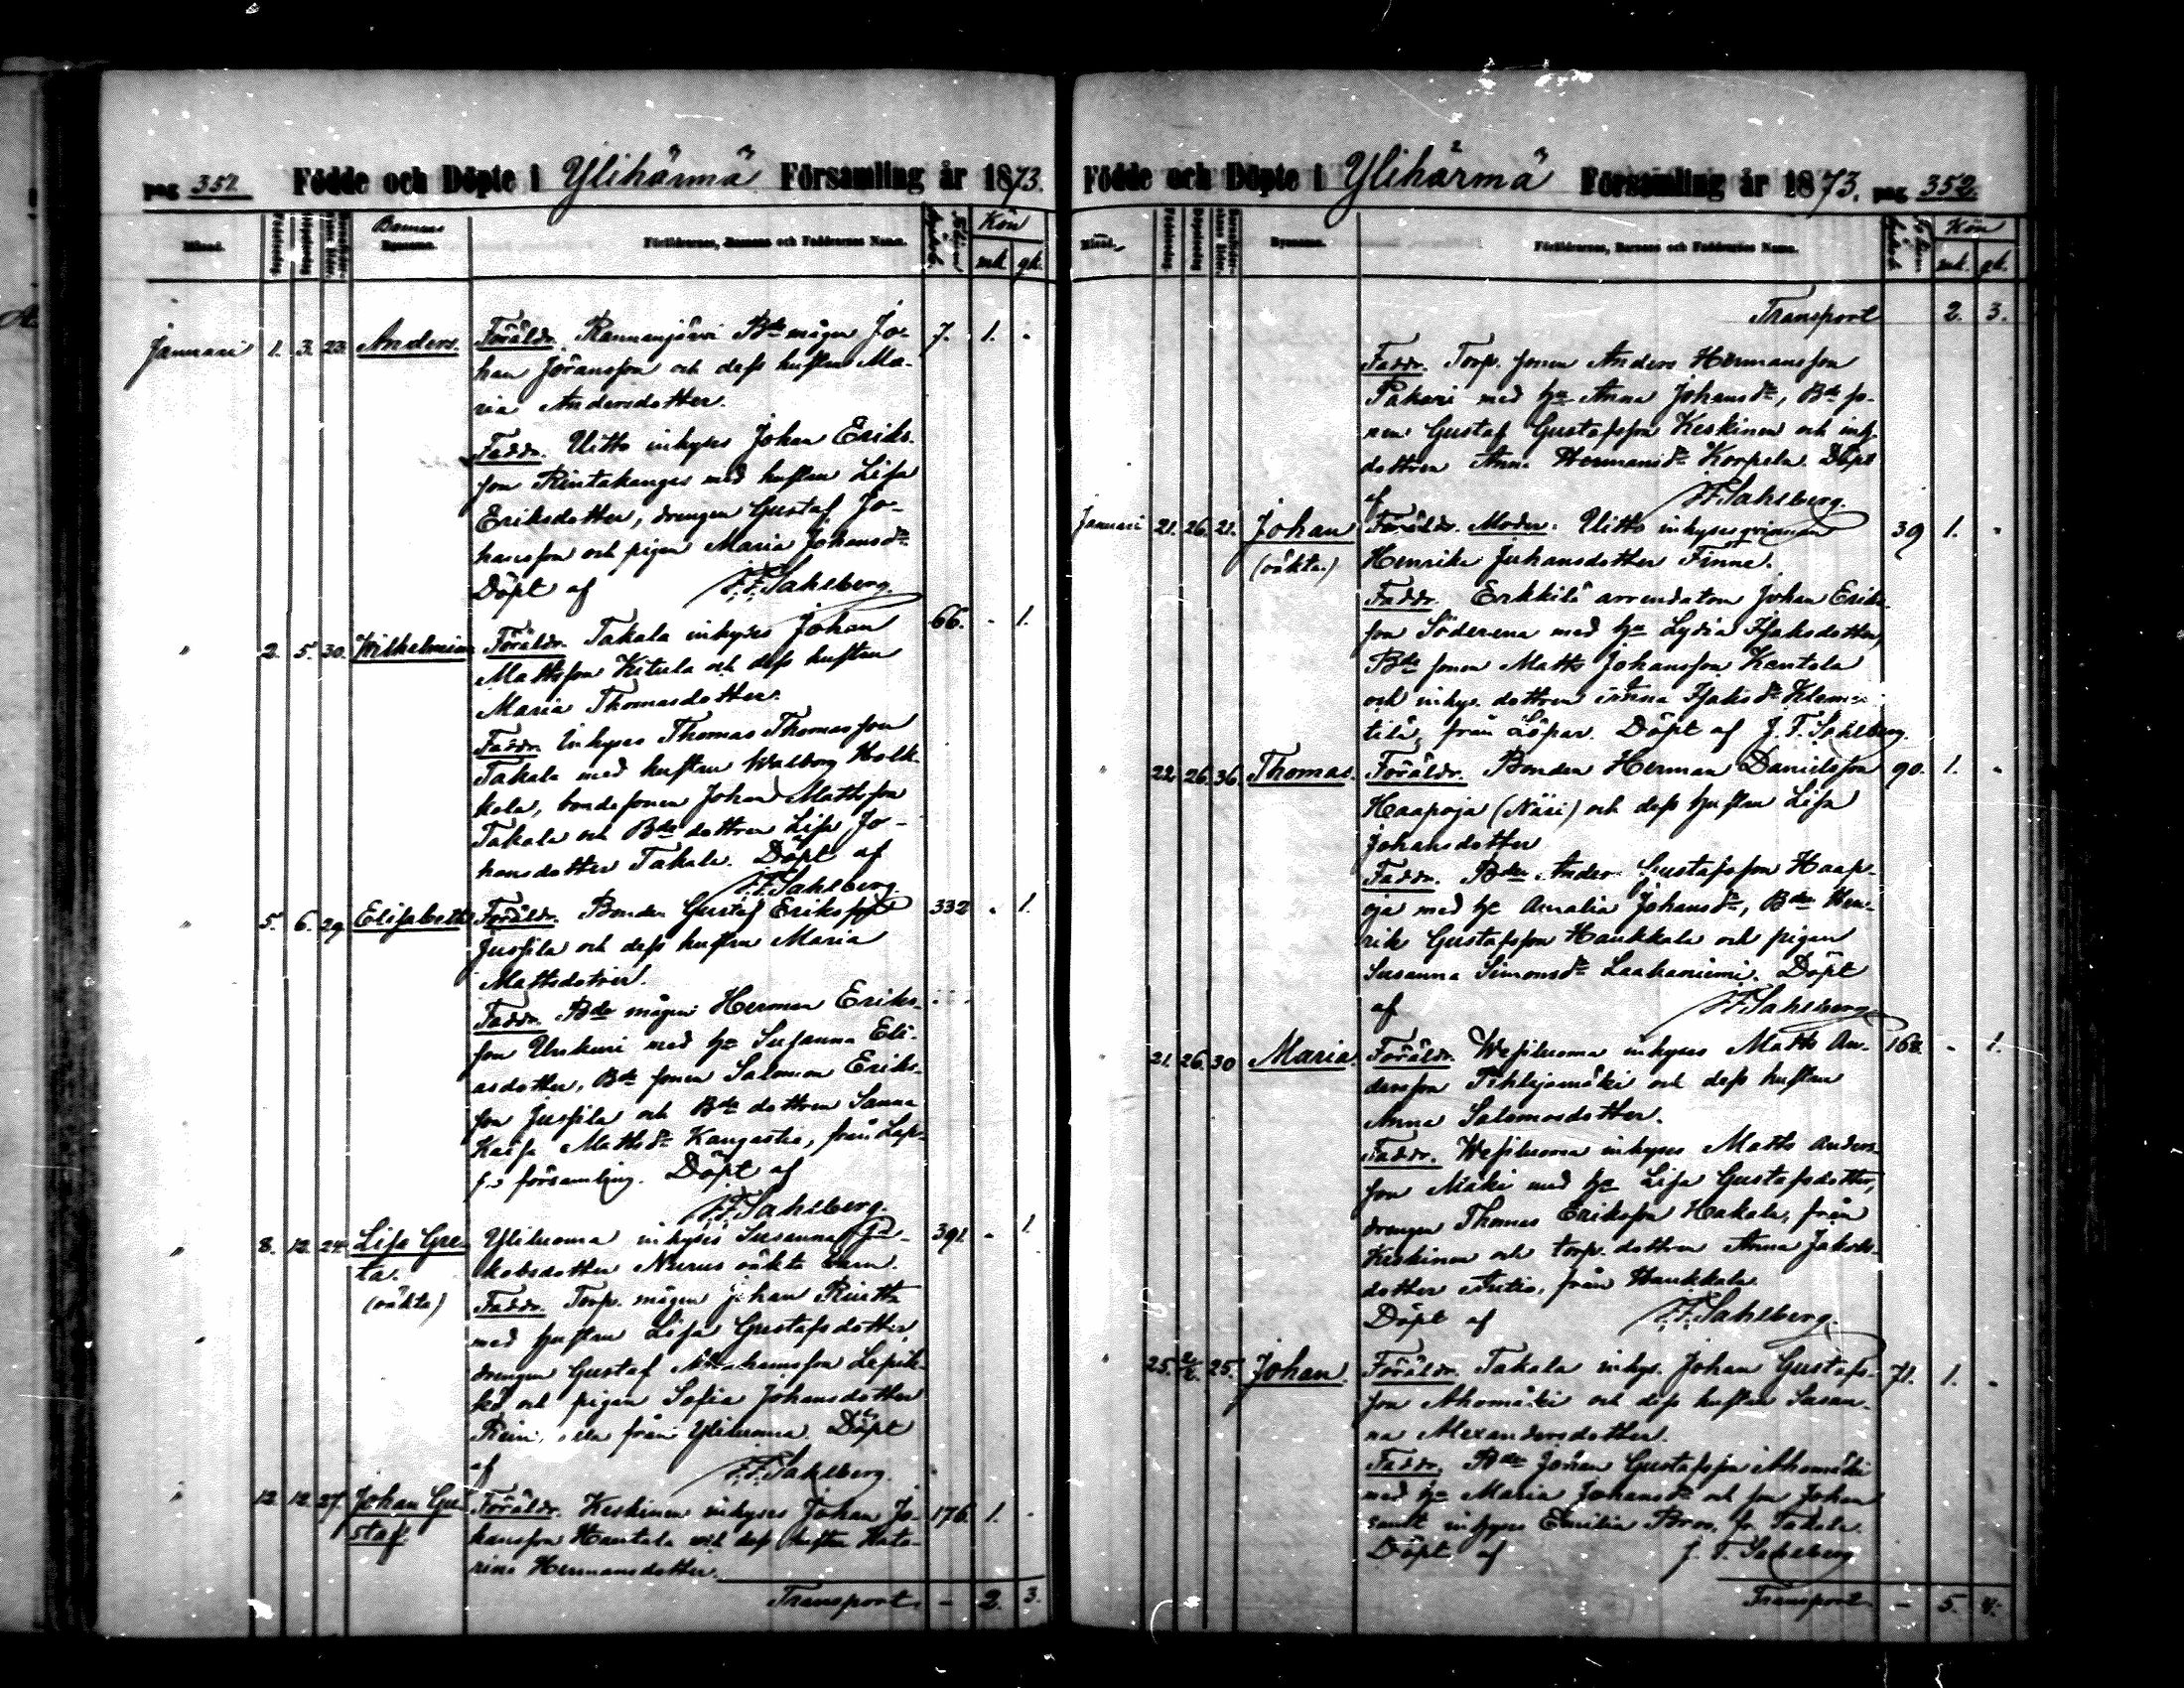 pag 351. Födde och Döpte i Ylihärmä Församling år 1873.
Månad. Födelsedag Döpelsedag Barnens Bynamn. Föräldrarnes, Barnens och Faddrarnes Namn. Kön
mk. qk.
Januari 1. 3. 23. Anders. Föräldr. Rannanjärvi Bde mågen Jo- 7. 1. -
han Jöransson och dess hustru Ma-
ria Andersdotter.
Faddr. Uitto inhyses Johan Eriks-
son Rintakangas med hustru Lisa
Eriksdotter, drengen Gustaf Jo-
hansson och pigan Maria Johansdr.
Döpt af J. F. Sahlberg.
" 2. 5. 30. Wilhelmina Föräldr. Takala inhyses Johan 66. - 1.
Mattsson Kitula och dess hustru
Maria Thomasdotter.
Faddr. Inhyses Thomas Thomasson
Takala med hustru Walborg Kolk-
kala, bondesonen Johan Mattsson
Takala och Bde dottren Lisa Jo-
hansdotter Takala. Döpt af
J. F. Sahlberg.
" 5. 6. 29. Elisabeth Föräldr. Bonden Gustaf Eriksson 332 - 1.
Jussila och dess hustru Maria
Mattsdotter.
Faddr. Bde mågen Herman Eriks-
son med hu Susanna Eli-
asdotter, Bde sonen Salomon Eriks-
son Jussila och Bde dottren Sanna
Kaisa Mattsdr Kangastie, från Lap-
församling. Döpt af
J. F. Sahlberg.
" 8. 12. 24. Lisa Gre- Yliluoma inhyses Susanna Ja- 391. - 1.
ta. kobsdotter Nurus oäkta barn.
(oäkta) Faddr. Torp. mågen Johan
med hustru Lisa Gustafsdotter,
drengen Gustaf Abrahamsson
och pigan Sofia Johansdotter
från Yliluoma. Döpt
af J. F. Sahlberg.
" 12. 12. 27. Johan Gu- Föräldr. Keskinen inhyses Johan Jo- 176. 1. -
staf hansson Hantala och dess hustru Kata-
rina Hermansdotter.
Transport - 2. 3.
Födde och Döpte i Ylihärmä Församling år 1873. pag 352.
Månad. Födelsedag Döpelsedag Bynamn. Föräldrarnes, Barnens och Faddrarnes Namn. Kön
mk. qk.
Transport 2. 3.
Faddr. Torp. sonen Anders Hermansson
Pakari med hu Anna Johansdr, Bde so-
nen Gustaf Gustafsson Keskinen och inh.
dottren Anna Hermansdr Korpela. Döpt
af J. F. Sahlberg.
Januari 21. 26. 21. Johan Föräldr. Moder: Uitto inhysesqvinnan 39 1. -
(oäkta) Henrika Juhansdotter Finne.
Faddr. Erkkilä arrendatorn Johan Eriks-
son Söderena med hu Lydia Isaksdotter,
Bde sonen Matts Johansson Kantola
och inhys. dottren Sanna Isaksdr
tilä, från Lappar. Döpt af J. F. Sahlberg.
" 22. 26. 36. Thomas. Föräldr. Bonden Herman Danielsson 90. 1. -
Haapoja (Näsi) och dess hustru Lisa
Johansdotter
Faddr. Bden Anders Gustafsson Haap-
oja med hu Amalia Johansdr, Bden Hen-
rik Gustafsson Haukkala och pigan
Susanna Simonsdr Laahaniemi. Döpt
af J. F. Sahlberg
21. 26. 30 Maria. Föräldr. Wesiluoma inhyses Matts An- 168. - 1.
dersson Pihlajamäki och dess hustru
Anna Salomosdotter.
Faddr. Wesiluoma inhyses Matts Anders-
son Mäki med hu Lisa Gustafsdotter,
drengen Thomas Eriksson Hakala, från
Keskinen och torp. dottren Anna Jakobs-
dotter Autio, från Haukkala.
Döpt af J. F. Sahlberg.
" 25. 2/2. 25. Johan. Föräldr. Takala inhys. Johan Gustafs- 71. 1. -
son Ahomäki och dess hustru Susan-
na Alexandersdotter.
Faddr. Bde Johan Gustafsson Ahomäki
med hu Maria Johansdr och son Johan
samt inhyses Emilia Bros, fr. Takala.
Döpt af J. F. Sahlberg
Transport - 5. 4.